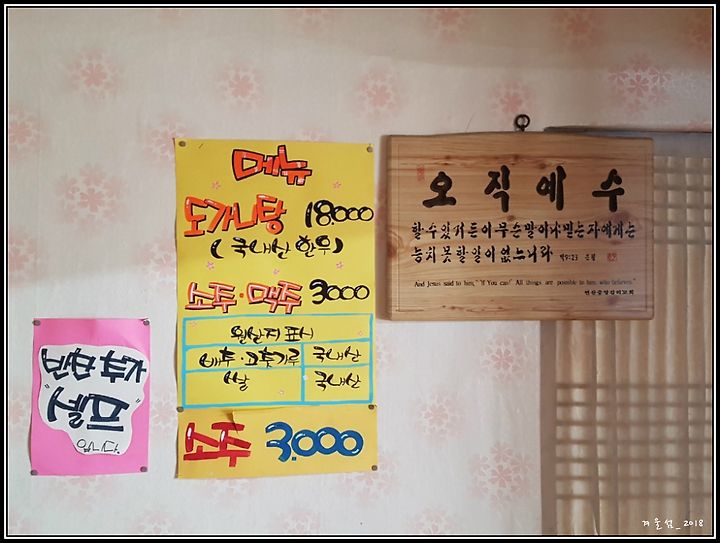 메뉴
도가니탕 18.000
(국내산 한우)
소주·맥주 3000
원산지 표시
배추·고춧가루 국내산
쌀 국내산
소주 3.000
반찬추가
"셀프"
입니다.
오직예수
할수있거든이무슨말이냐믿는자에게는
능치못할일이없느니라 막9:23 은필
And Jesus said to him, "If You can!" All things are possible to him who believes."
연산중앙감리교회
겨울섬_2018